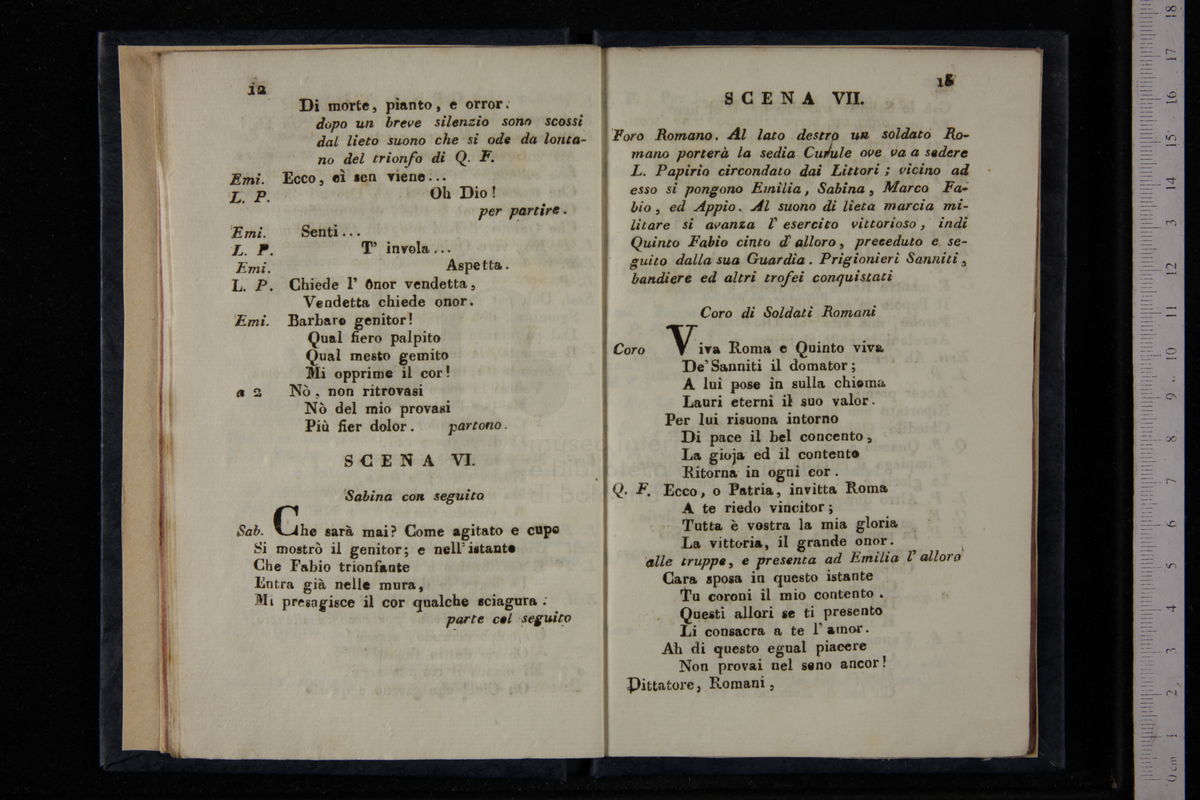 12
Di morte, pianto, e orror.
dopo un breve silenzio sono scossi
dal lieto suono che si ode da lonta-
no del trionfo di Q. F.
Emi. Ecco, ei sen viene...
L. P. Oh Dio!
per partire.
Emi. Senti...
L. P. T' invola...
Emi. Aspetta.
L. P. Chiede l' onor vendetta,
Vendetta chiede onor.
Emi. Barbaro genitor!
Qual fiero palpito
Qual mesto gemito
Mi opprime il cor!
a 2 Nò, non ritrovasi
Nò del mio provasi
Più fier dolor. partono.
SCENA VI.
Sabina con seguito
Sab. Che sarà mai? Come agitato e cupo
Si mostrò il genitor; e nell'istante
Che Fabio trionfante
Entra già nelle mura,
Mi presagisce il cor qualche sciagura.
parte col seguito
SCENA VII.
Foro Romano. Al lato destro un soldato Ro-
mano porterà la sedia Curule ove va a sedere
L. Papirio circondato dai Littori; vicino ad
esso si pongono Emilia, Sabina, Marco Fa-
bio, ed Appio. Al suono di lieta marcia mi-
litare si avanza l' esercito vittorioso, indi
Quinto Fabio cinto d' alloro, preceduto e se-
guito dalla sua Guardia. Prigionieri Sanniti,
bandiere ed altri trofei conquistati
Coro di Soldati Romani
Coro Viva Roma e Quinto viva
De' Sanniti il domator;
A lui pose in sulla chioma
Lauri eterni il suo valor.
Per lui risuona intorno
Di pace il bel concento,
La gioja ed il contento
Ritorna in ogni cor.
Q. F. Ecco, o Patria, invitta Roma
A te riedo vincitor;
Tutta è vostra la mia gloria
La vittoria, il grande onor.
alle truppe, e presenta ad Emilia l' alloro
Cara sposa in questo istante
Tu coroni il mio contento.
Questi allori se ti presento
Li consacra a te l' amor.
Ah di questo egual piacere
Non provai nel seno ancor!
Dittatore, Romani,